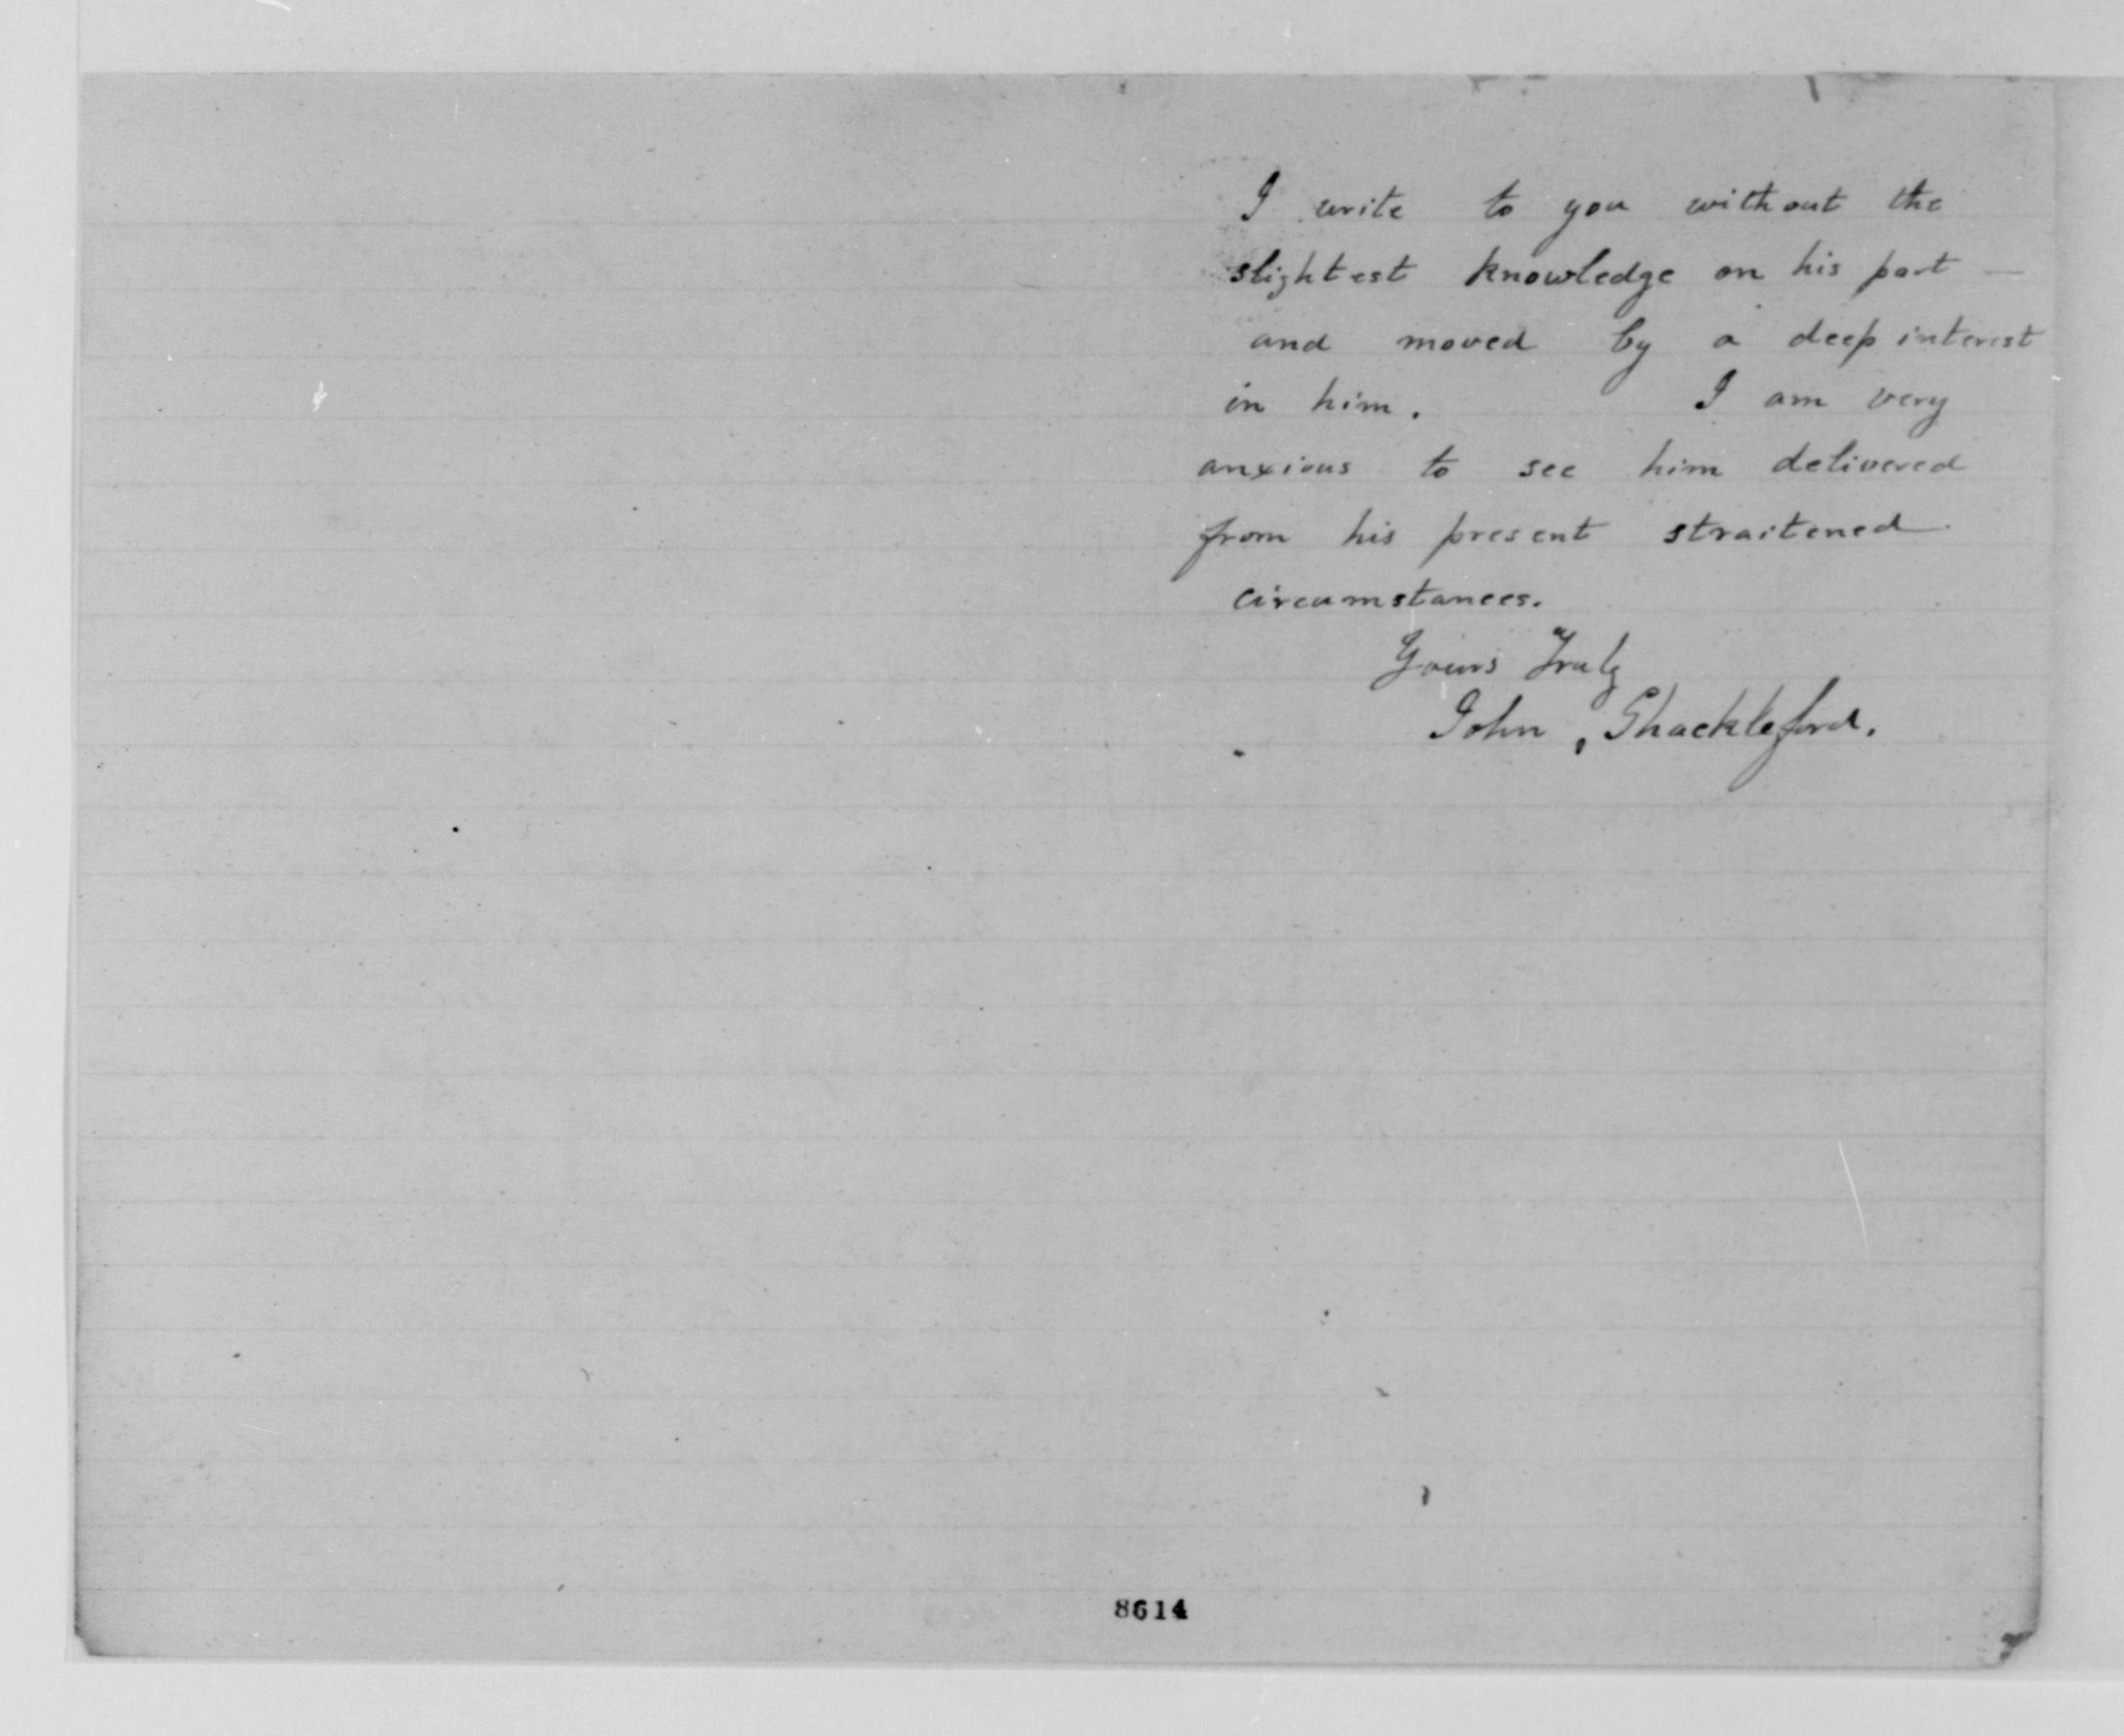 I write to you without the
slightest knowledge on his part —
and moved by a deep interest
in him. I am very
anxious to see him delivered
from his present straitened
circumstances.
Yours Truly
John, Shackleford.
8614